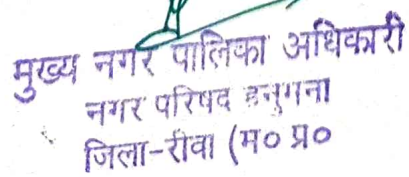 मुख्य नगर पालिका अधिकारी
नगर परिषद हनुगना
जिला-रीवा (म० प्र०